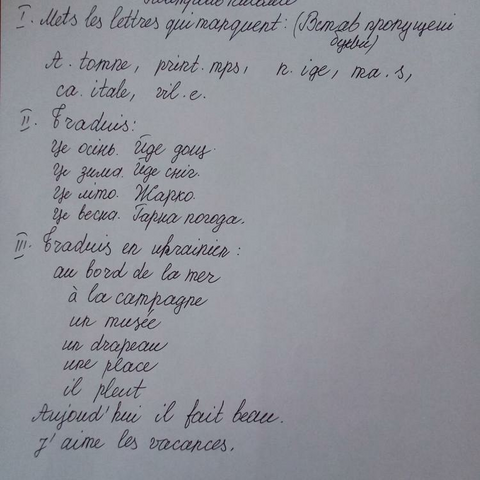 I. Mets les lettres qui manquent: (Встав пропущені
букви)
A. tomne, print. mps, n. ige, ma. s,
ca. itale, vil. e.
II. Traduis:
Це осінь. Йде дощ.
Це зима. Йде сніг.
Це літо. Жарко.
Це весна. Гарна погода.
III. Traduis en ukrainien:
au bord de la mer
à la campagne
un musée
un drapeau
une place
il pleut
Aujourd'hui il fait beau.
J'aime les vacances.